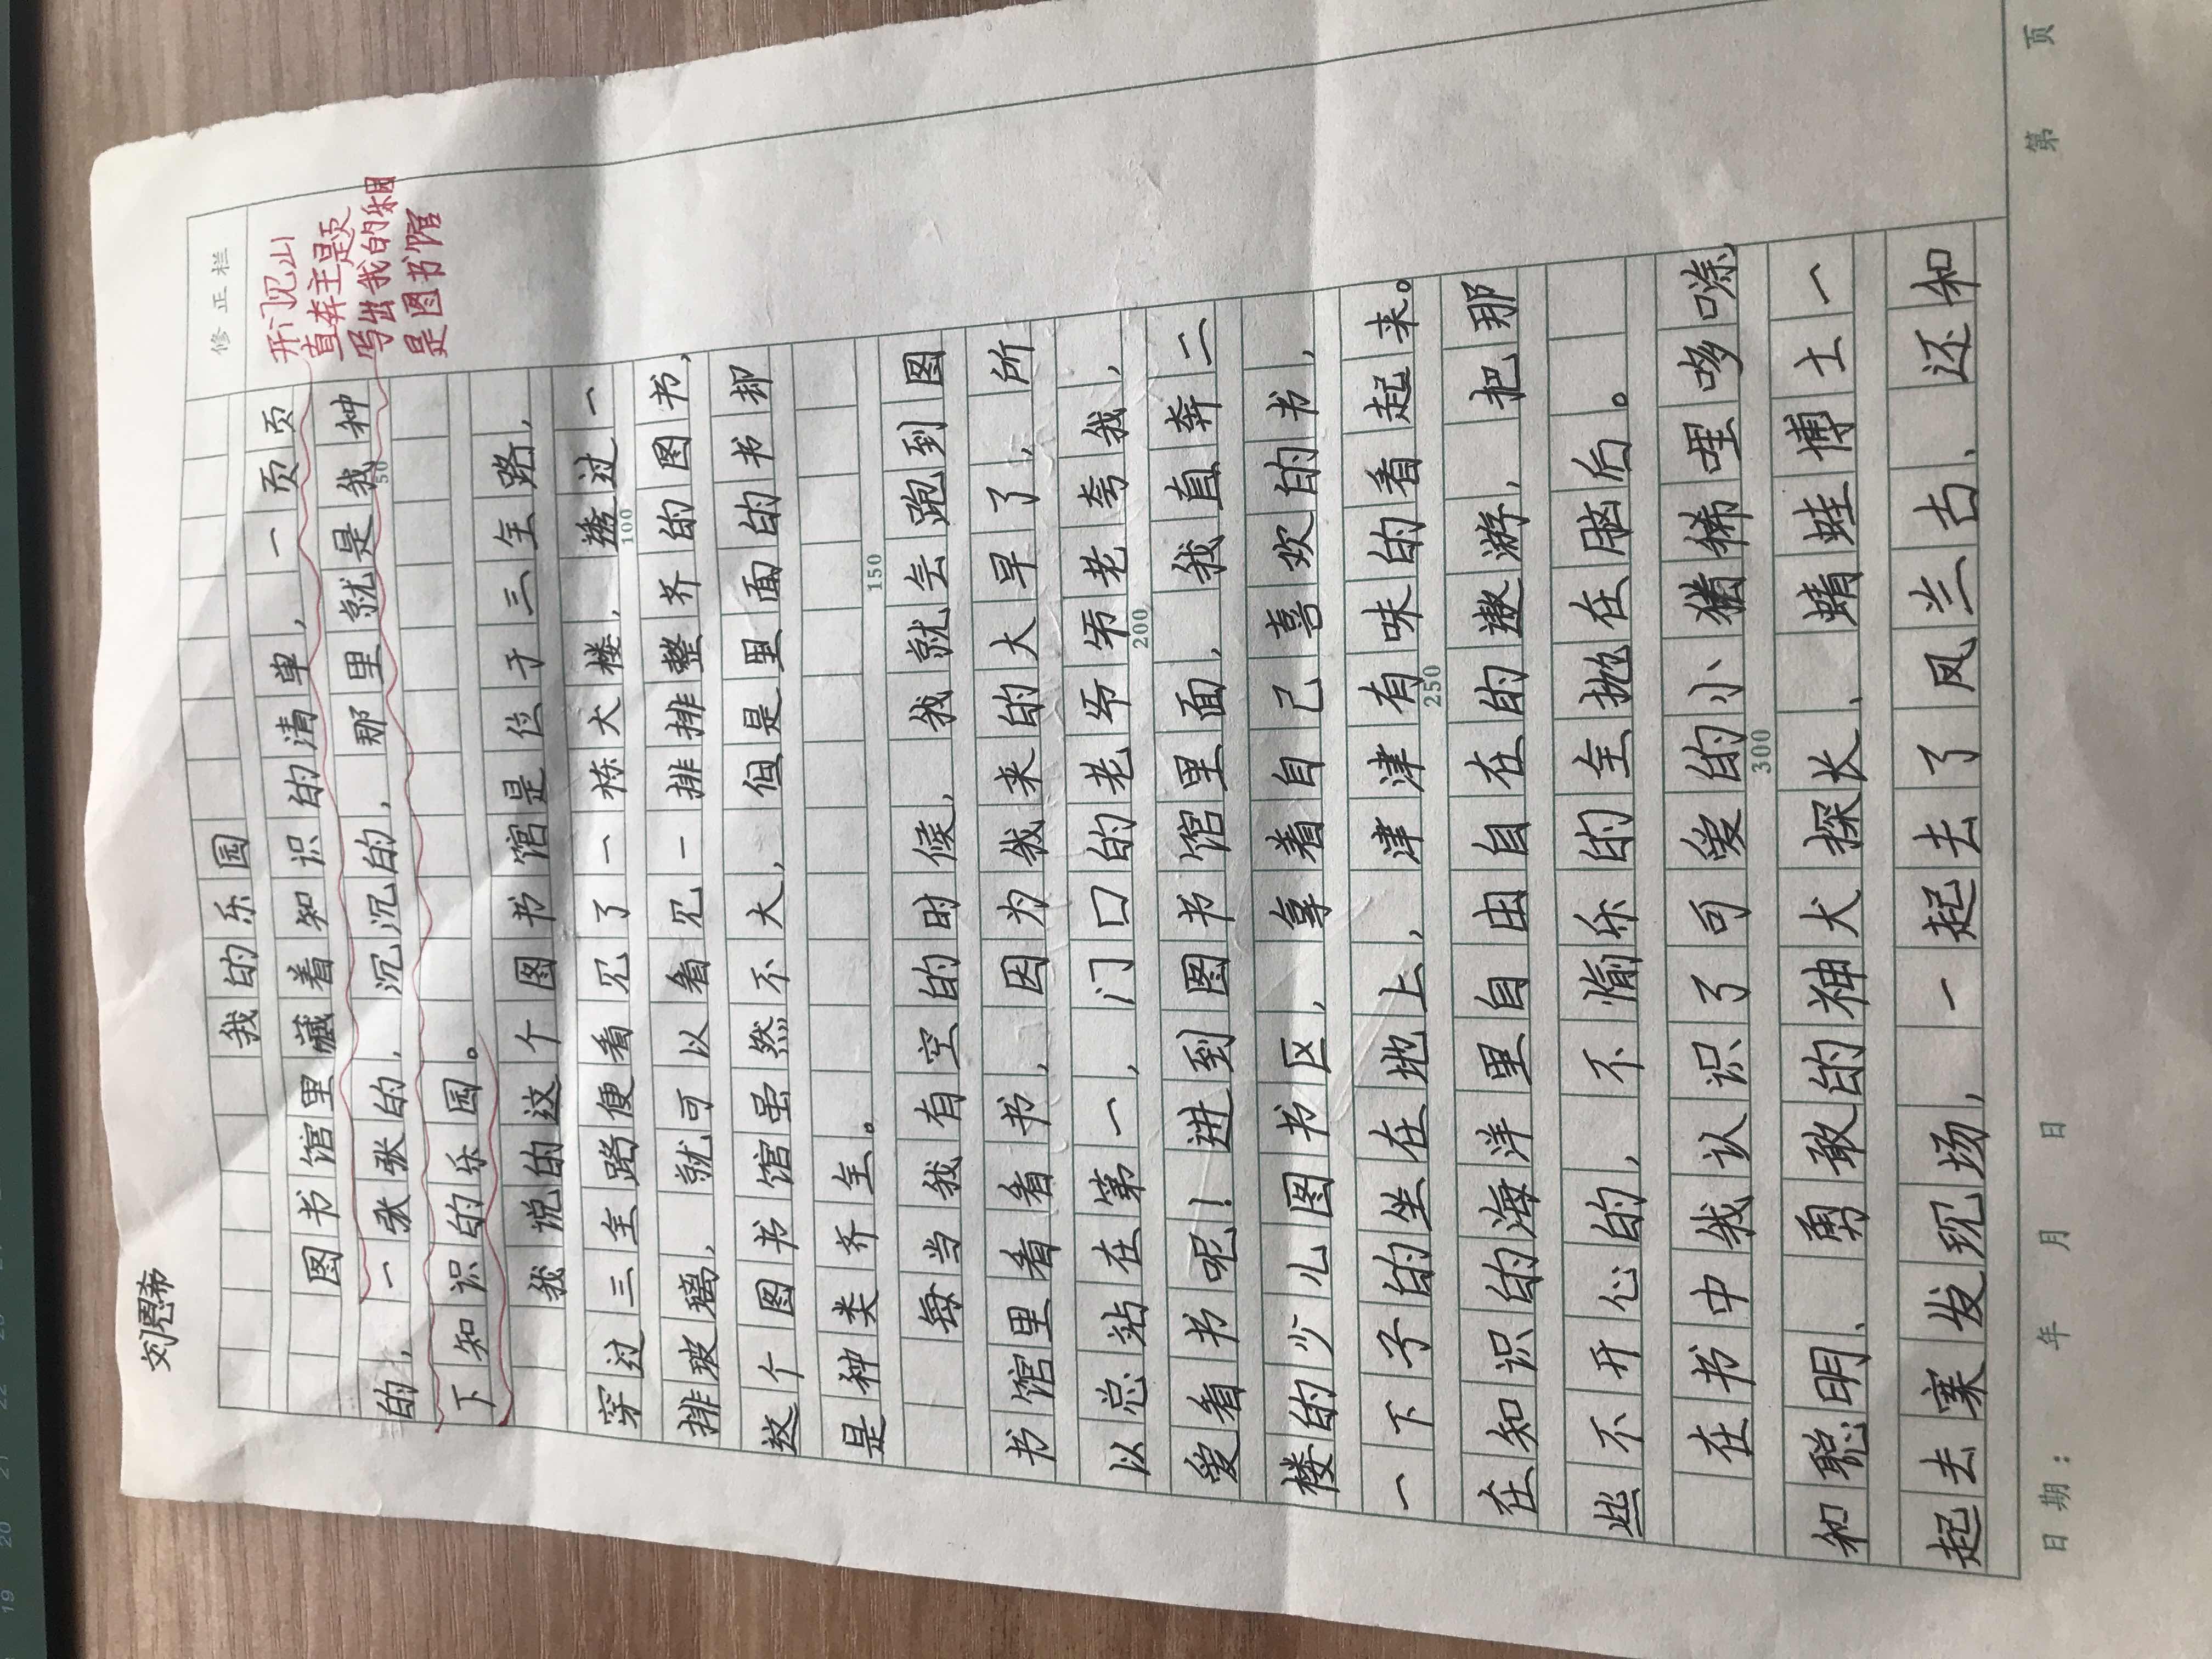 刘恩希
我的乐园
修正栏
图书馆里藏着知识的清单，一页页
的，一张张的，沉沉的，那里就是我种
下知识的乐园。
开门见山
直奔主题
写出我的乐园
是图书馆
50
我说的这个图书馆是位于三全路，
穿过三全路便看见了一栋大楼，透过一
100
排玻璃，就可以看见一排排整齐的图书，
这个图书馆虽然不大，但是里面的书却
是种类齐全。
150
每当我有空的时候，我就会跑到图
书馆里看看书，因为我来的大早了，所
以总站在第一，门口的老爷爷老夸我，
200
爱看书呢！进到图书馆里面，我直奔二
楼的少儿图书区，拿着自己喜欢的书，
一下子的坐在地上，津津有味的看起来。
250
在知识的海洋里自由自在的遨游，把那
些不开心的，不愉乐的全抛在脑后。
在书中我认识了可爱的小猪稀哩哆嗦
300
和聪明、勇敢的神犬探长、蜻蛙博士一
起去寨发现场，一起去了凤兰古、还和
日期： 年 月 日
第 页